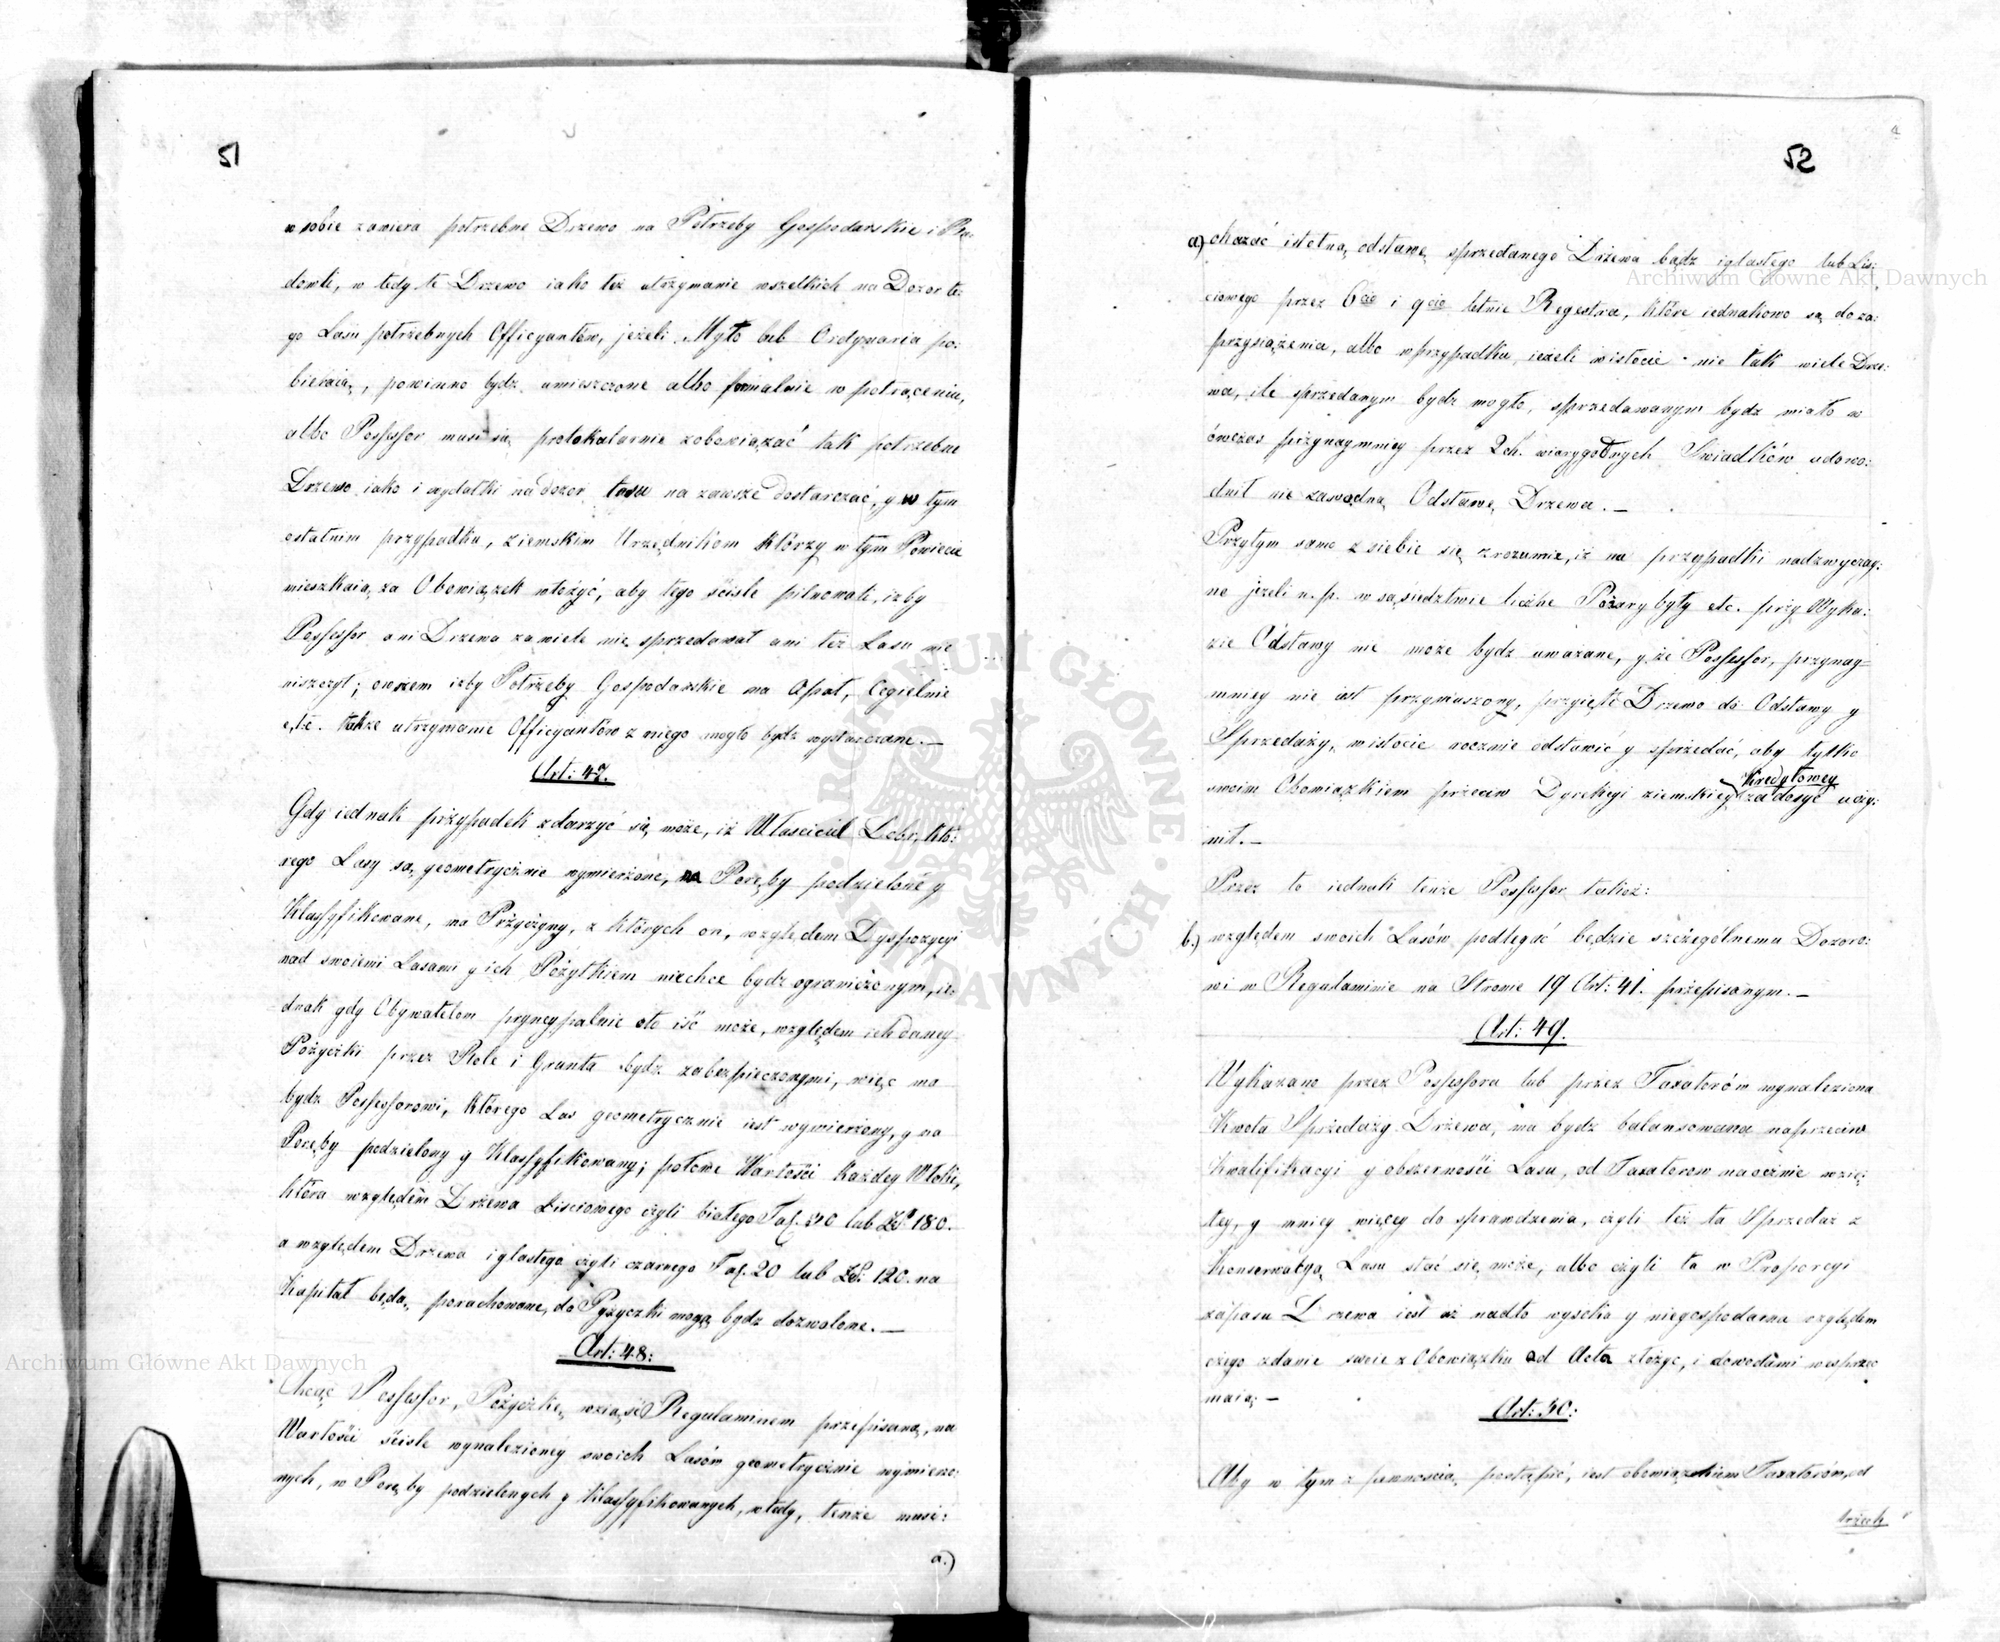 51
w sobie zawiera potrzebne Drzewo na Potrzeby Gospodarskie i Bu:
dowli, w tedy te Drzewo iako też utrzymanie wszelkich na Dozor te:
go Lasu potrzebnych Officyantów, jeżeli Myto lub Ordynaria po:
bieraią, powinno bydź umieszczone albo formalnie w potrąceniu,
albo Possessor musi się protokularnie zobowiązać tak potrzebne
Drzewo iako i wydatki na dozor lasu na zawsze dostarczać, y w tym
ostatnim przypadku, ziemskim Urzędnikom którzy w tym Powiecie
mieszkaią za Obowiązek włożyć, aby tego scisle pilnowali, izby
Possessor ani Drzewa zawiele nie sprzedawał ani też Lasu nie
niszczył; owszem izby Potrzeby Gospodarskie na Opał, Cegielnie
etc. także utrzymanie Officyantów z niego mogło bydź wystarczane.—
Art: 47.
Gdy iednak przypadek zdarzyć się może, iż Właściciel Dobr, któ:
rego Lasy są geometrycznie wymierzone, na Poręby podzielone y
Klassyfikowane, ma Przyczyny, z których on, względem Dyspozycyi
nad swoiemi Lasami y ich Pożytkiem niechce bydź ograniczonym, ie:
dnak gdy Obywatelom pryncypalnie oto iść może, względem ich daney
Pożyczki przez Role i Grunta bydź zabezpieczonymi, więc ma
bydź Possessorowi, którego Las geometrycznie iest wymierzony, y na
Poręby podzielony y Klassyfikowany; połowe Wartości każdey Włoki,
która względem Drzewa Lisciowego czyli białego Tal. 30 lub Zł. 180.
a względem Drzewa iglastego czyli czarnego Tal. 20 lub Zł. 120. na
Kapitał będą porachowane, do Pożyczki mogą bydź dozwolone.—
Art: 48:
Chcąc Possessor, Pożyczkę wziąść Regulaminem przepisaną, na
Wartości ściśle wynalezioney swoich Lasów geometrycznie wymierzo:
nych, w Poręby podzielonych y Klassyfikowanych, wtedy, tenże musi:
a.)
52
a) okazać istotną odstawę sprzedanego Drzewa bądź iglastego lub Lis:
ciowego przez 6cio i 9cio letnie Regestra, które iednakowo są do za:
przysiążenia, albo wprzypadku, ieżeli wistocie nie tak wiele Drze:
wa, ile sprzedanym bydź mogło, sprzedawanym bydź miało w
ówczas przynaymniey przez 2ch. wiarygodnych Swiadków udowo:
dnił nie zawodną Odstawę Drzewa.—
Przytym samo z siebie się rozumie, iż na przypadki nadzwyczay:
ne jeżeli n. p. w sąsiedztwie liczne Pożary były etc. przy Wyka:
zie Odstawy nie może bydź uważane, y że Possessor, przynay=
mniey nie iest przymuszony, przyięte Drzewo do Odstawy y
Sprzedaży, wistocie rocznie odstawić y sprzedać, aby tylko
Kredytowey
swoim Obowiązkiem przeciw Dyrekcyi ziemskiey zadosyć uczy:
nił.—
Przez to iednak tenże Possessor takoż:
b.) względem swoich Lasów podlegać będzie szczególnemu Dozoro:
wi w Regulaminie na Stronie 19 Art: 41. przepisanym.—
Art: 49.
Wykazana przez Possessora lub przez Taxatorów wynaleziona
Kwota Sprzedaży Drzewa, ma bydź balansowana naprzeciw
Kwalifikacyi y obszerności Lasu, od Taxatorow naocznie wzię:
tey, y mniey więcey do sprawdzenia, czyli też ta Sprzedaż z
Konserwacyą Lasu stać się może, albo czyli ta w Proporcyi
zapasu Drzewa iest aż nadto wysoka y niegospodarna względem
czego zdanie swoie z Obowiązku ad Acta złożyc, i dowodami wesprzec
maią.—
Art: 50:
Aby w tym z pewnoscią postąpić, iest obowiązkiem Taxatorów, od
trzech
Archiwum Główne Akt Dawnych
Archiwum Główne Akt Dawnych
ARCHIWUM GŁÓWNE AKT DAWNYCH